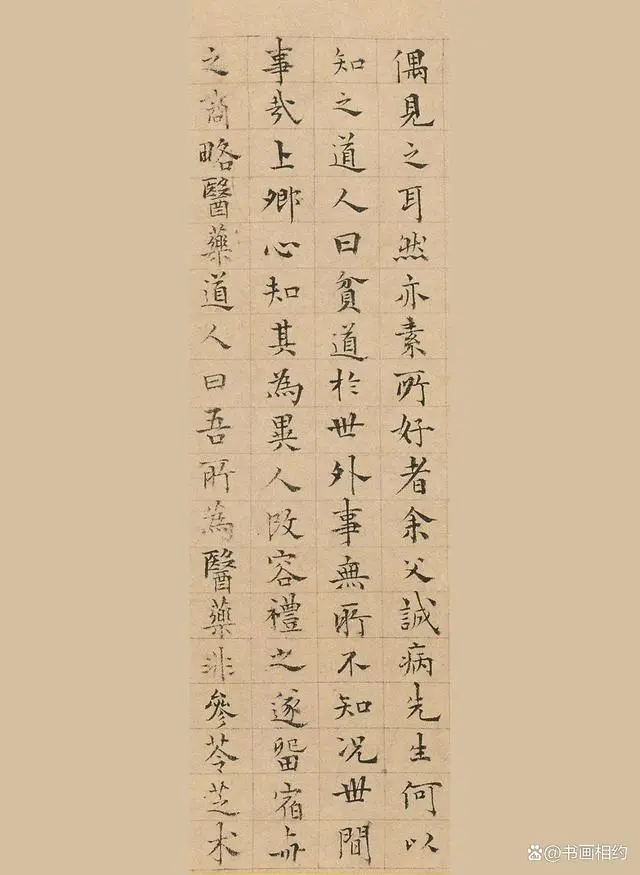 偶見之耳然亦素所好者余父誠病先生何以
知之道人曰貧道於世外事無所不知况世間
事哉上卿心知其為異人改容禮之遂留宿與
之商略醫藥道人曰吾所為醫藥非參苓芝术
@书画相约